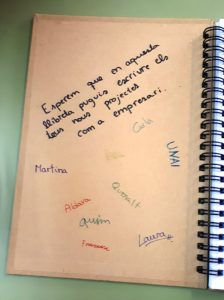 Esperem que en aquesta
llibreta puguis escriure els
teus nous projectes
com a empresari.
Carla
UNAI
Martina
Queralt
Aldara
quim
Francesc
Laura